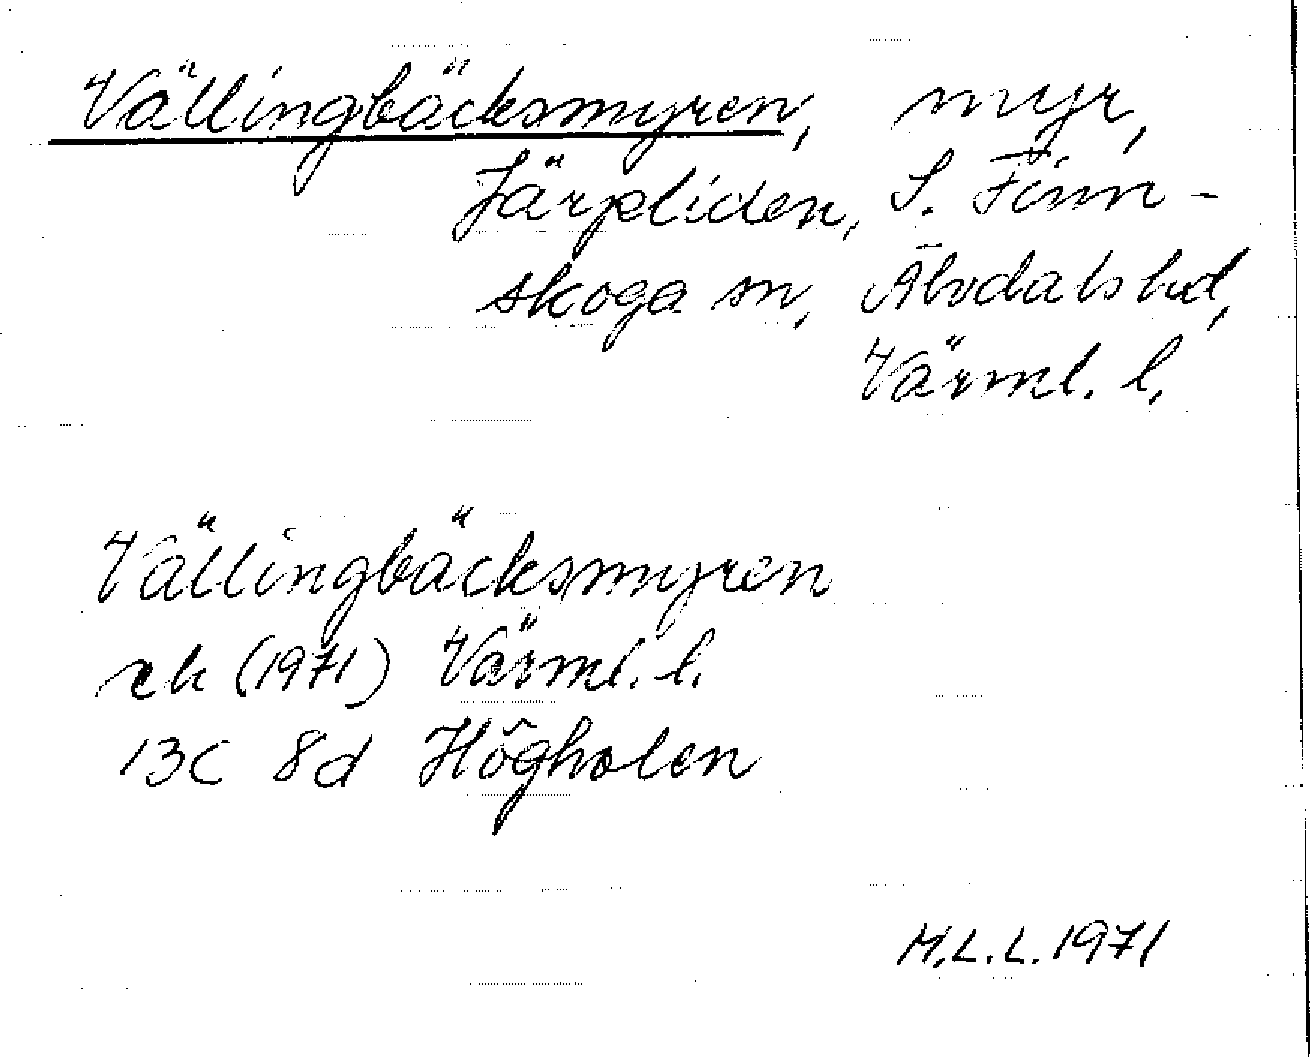 Vällingbäcksmyren, myr,
Järpliden, S. Finn-
skoga sn, Älvdals hd,
Värml. l.
Vällingbäcksmyren
rek (1971) Värml. l.
13C 8d Högholen
M.L.L. 1971